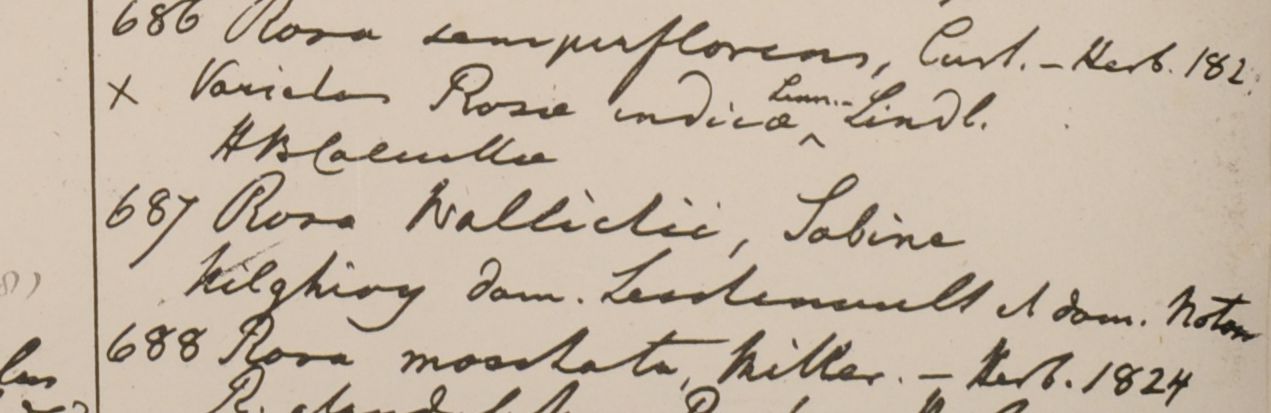 686 Rosa semperflorens, Curt. - Herb. 182
x Varietas Rosæ indicæ Linn.- Lindl.
HBCalcuttæ
687 Rosa Wallichii, Sabine
Nilghiry dom. Leschenault et dom. Noton
688 Rosa moschata, Miller. - Herb. 1824